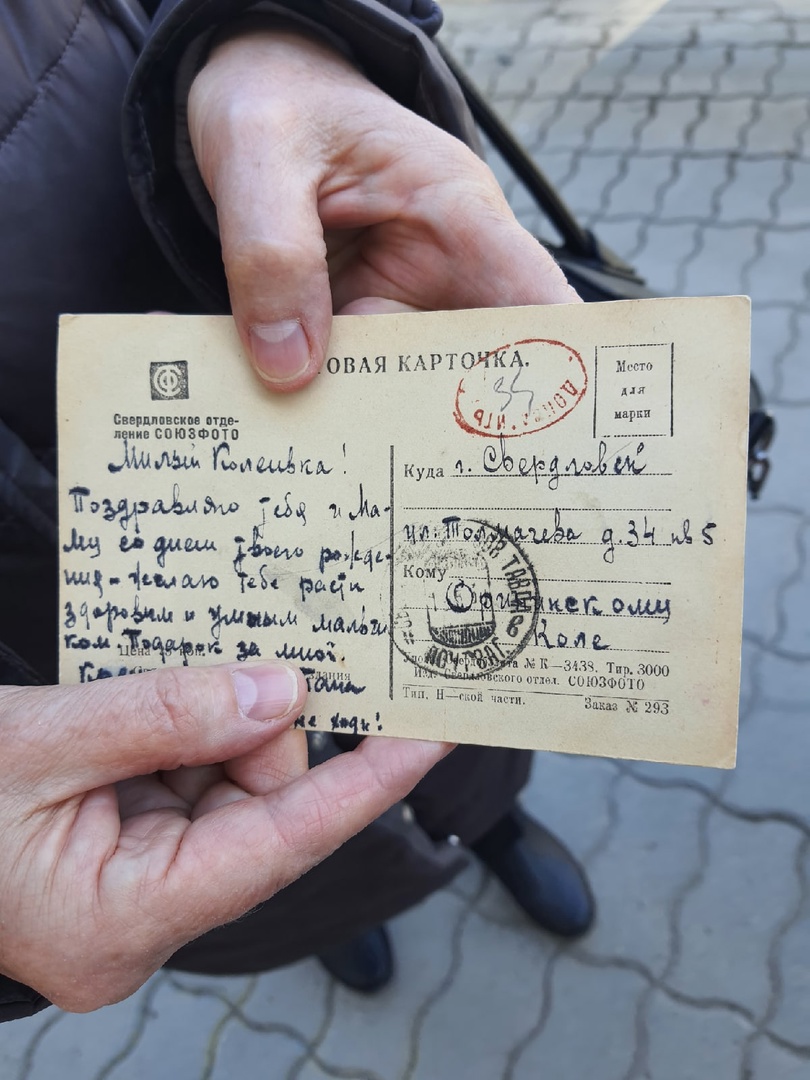 ОВАЯ КАРТОЧКА.
Место
для
марки
Свердловское отде-
ление СОЮЗФОТО
Милый Коленька!
Поздравляю тебя и Ма-
му со днем твоего рожде-
ния - желаю тебе расти
здоровым и умным мальчи
ком Подарок за мной.
Цена
Папа
не жди!
Куда г. Свердловск
ул. Толмачева д. 34 кв 5
Кому
Коле
№ К—3438. Тир. 3000
Изд. Свердловского отдел. СОЮЗФОТО
Тип. Н—ской части.
Заказ № 293
34